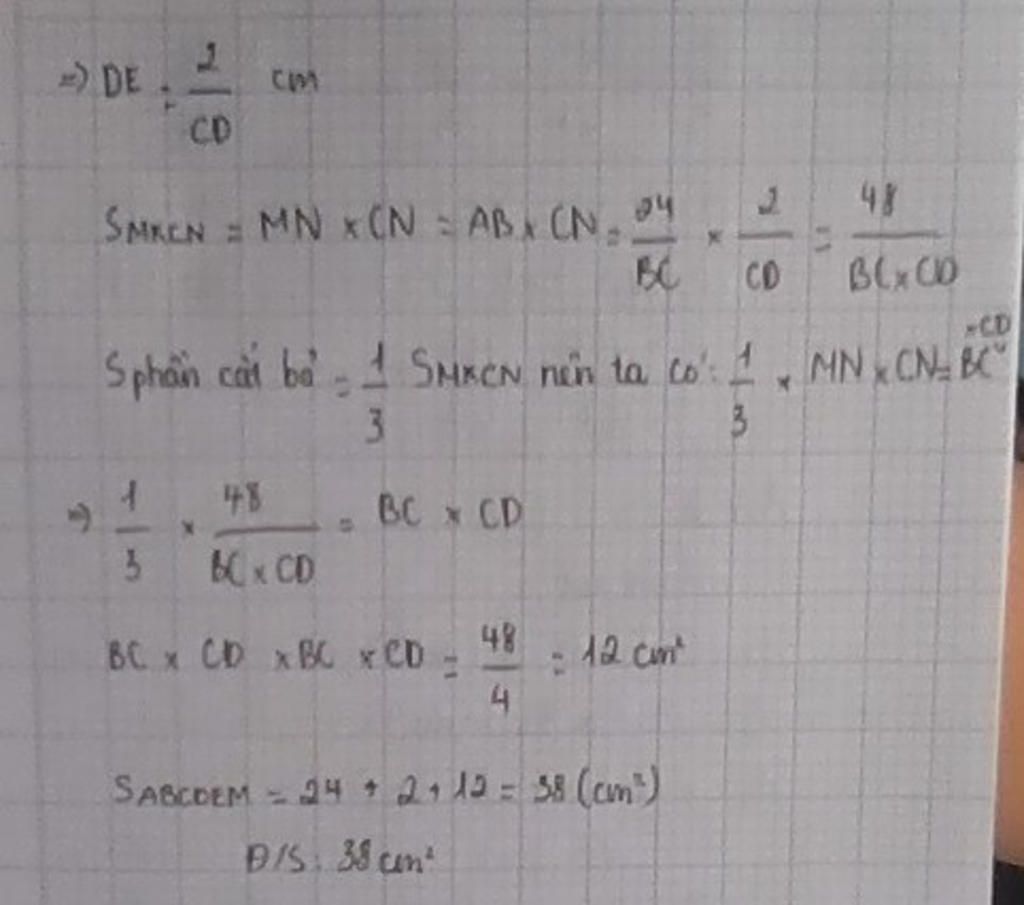 => DE = 2/CD cm
SMKCN = MN x CN = AB x CN = 24/BC x 2/CD = 48/BC x CD
Sphần cắt bỏ = 1/3 SMKCN nên ta có: 1/3 x MN x CN = BC x CD
=> 1/3 x 48/BC x CD = BC x CD
BC x CD x BC x CD = 48/4 = 12 cm²
SABCDEM = 24 + 2 + 12 = 38 (cm²)
Đ/S: 38 cm²